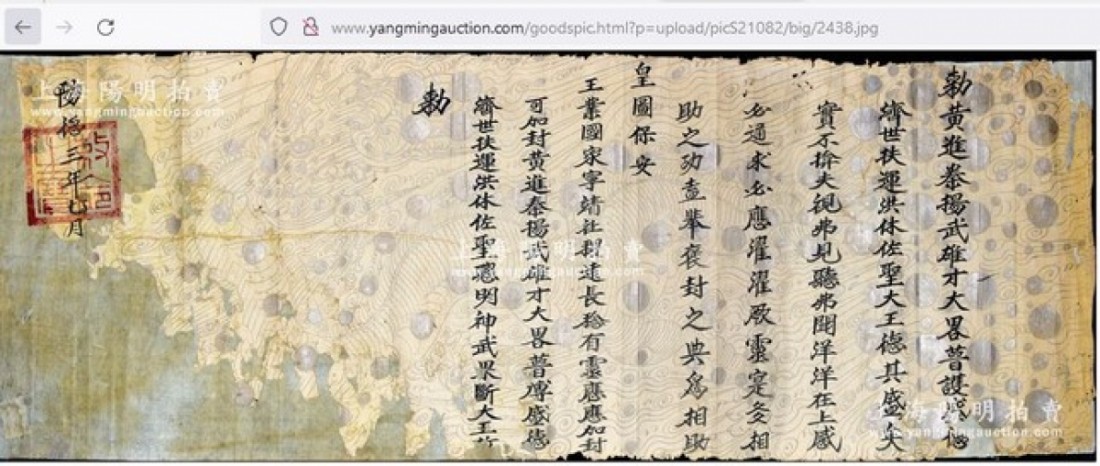 www.yangmingauction.com/goodspic.html?p=upload/picS21082/big/2438.jpg
上海陽明拍賣
www.yangmingauction.com
勅黄進泰揚武雄才大畧普護盛德
濟世扶運洪休佐聖大王德其盛矣
實不揜夫視弗見聽弗聞洋洋在上感
必通求必應濯濯厥靈寔多相
助之功盍舉褒封之典爲相助
皇圖保安
王業國家寧靖社稷遠長稔有靈應應加封
可加封黄進泰揚武雄才大畧普博盛德
濟世扶運洪休佐聖聰明神武果斷大王故
勅
陽德三年七月
上海陽明拍賣
www.yangmingauction.com
上海陽明拍賣
www.yangmingauction.com